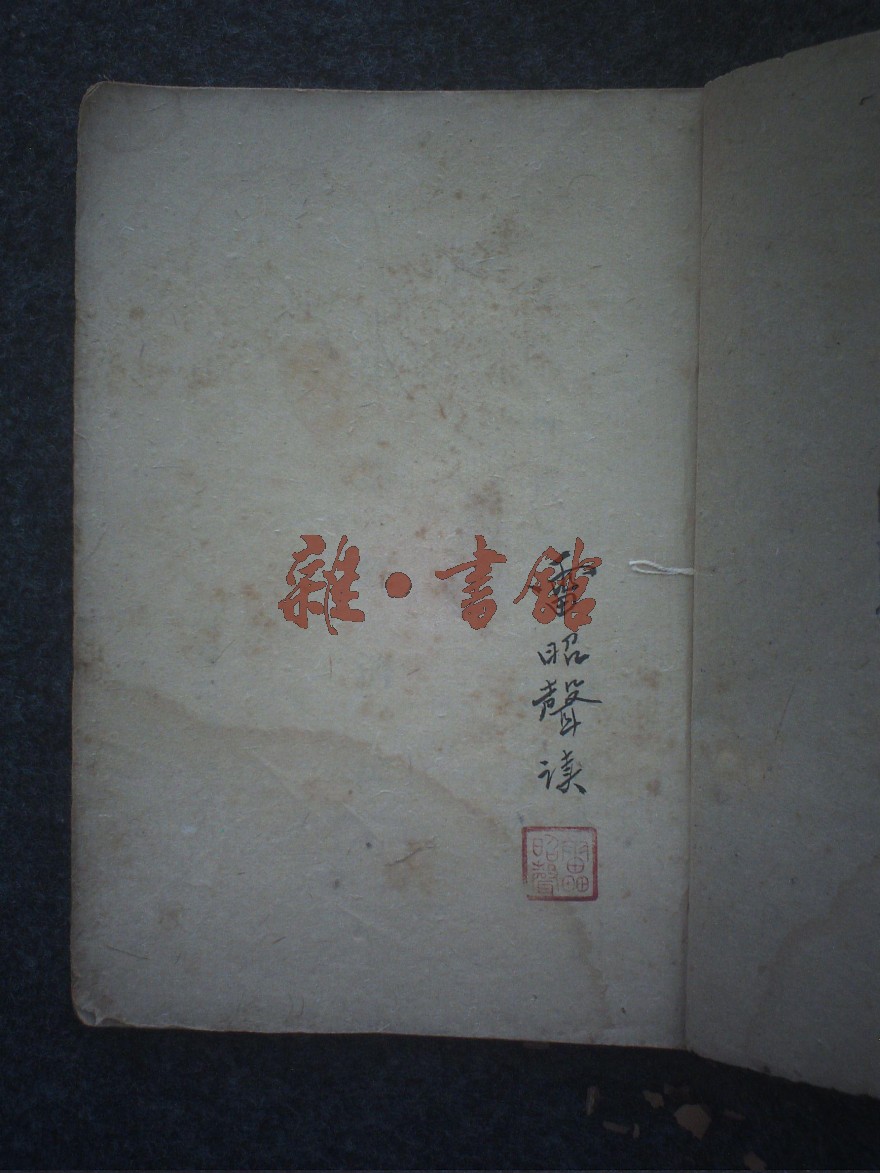 雜·書館
雷昭聲读
雷昭聲